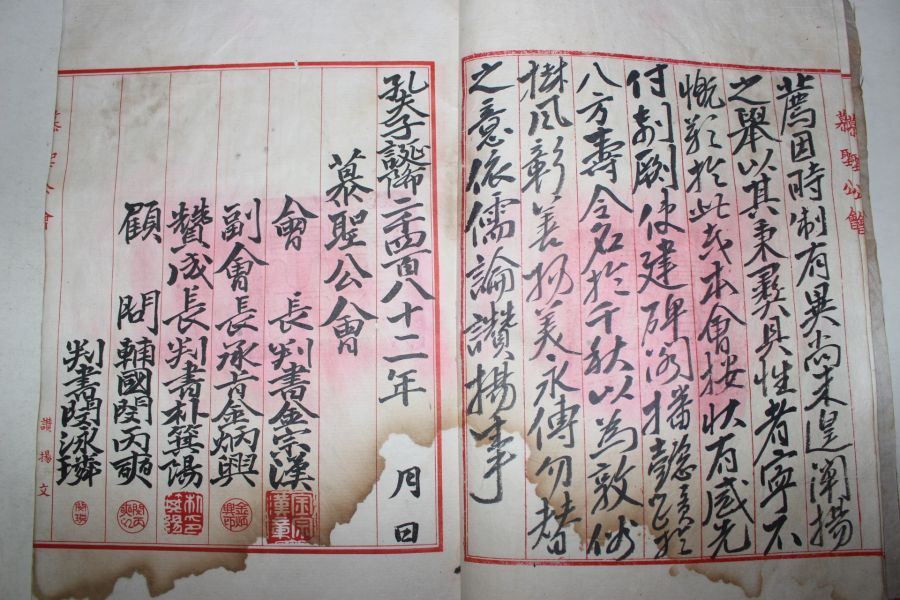 慕聖公會
薦因時制有異尚未遑闡揚
之舉以其秉彛具性者寧不
慨歎於此哉本會按狀有感先
付剞劂使建碑閣播懿於
八方壽令名於千秋以為敦俗
樹風彰善揚美永傳勿替
之意依儒論讚揚事
孔夫子誕降二千四百八十二年 月 日
慕聖公會
會 長 判書金宗漢
副會長承旨金炳興
贊成長判書朴箕陽
顧 問 輔國閔丙奭
判書閔泳璘
慕聖公會
讚揚文